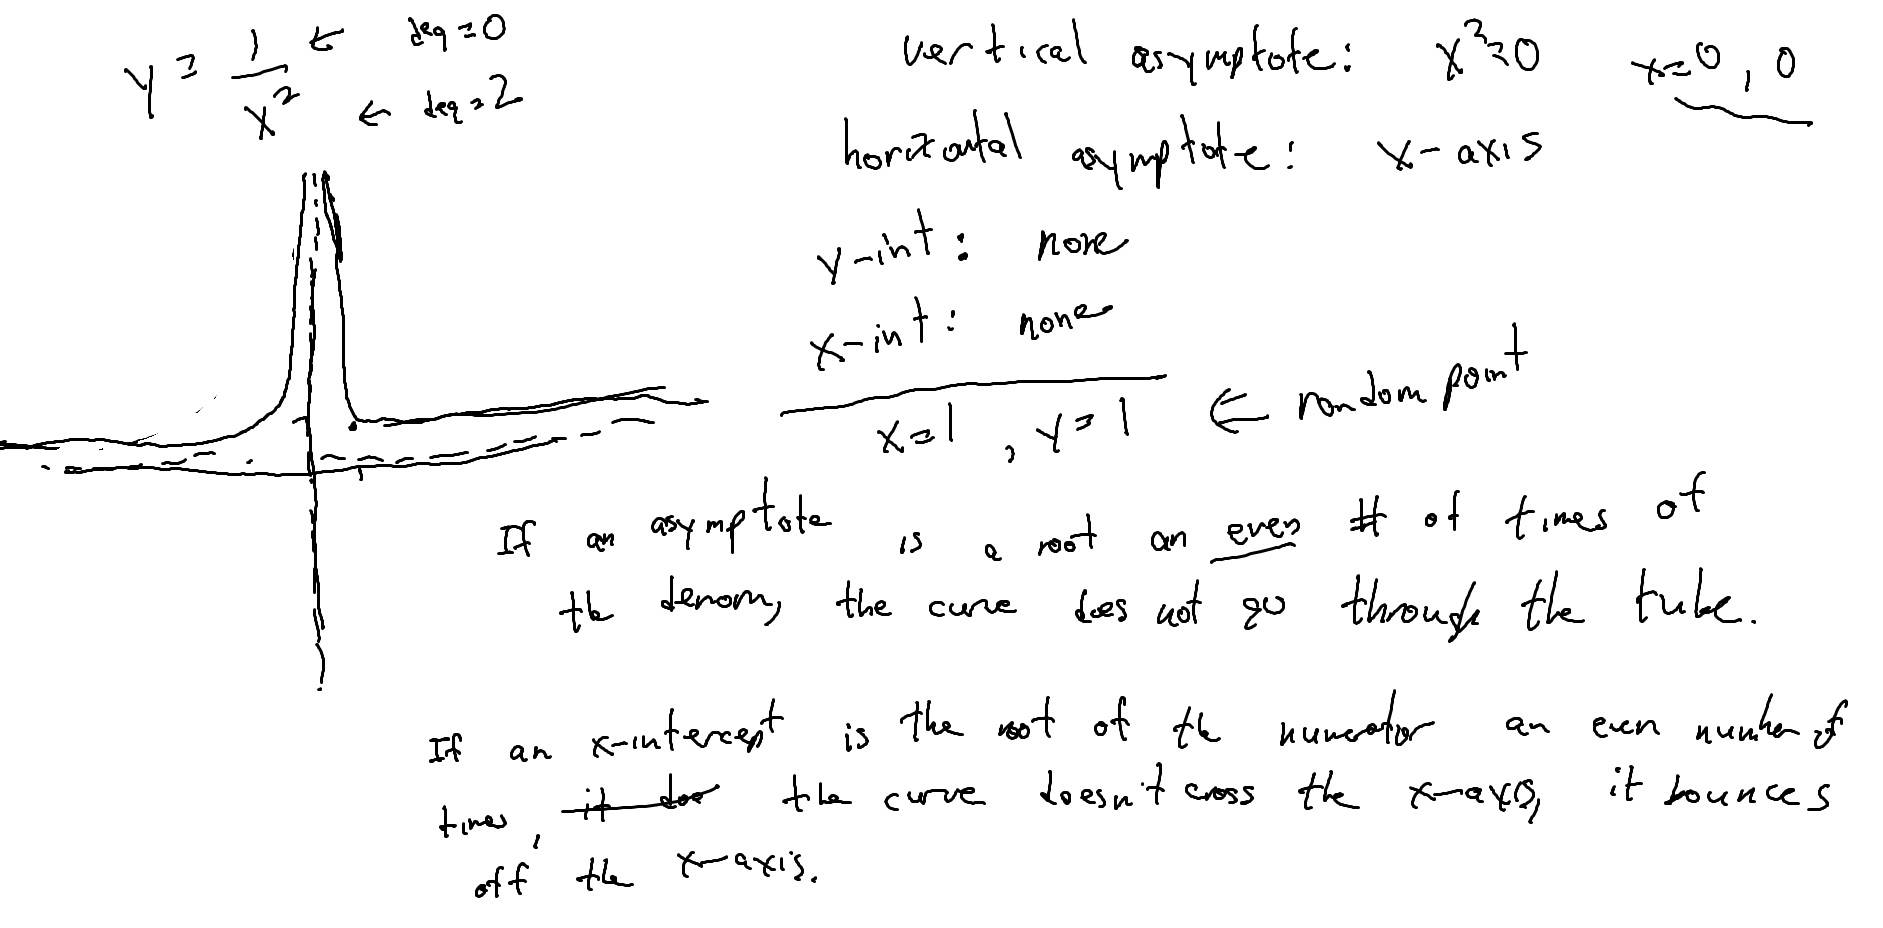 y = 1/x² ← deg = 0
← deg = 2
vertical asymptote: x² = 0 x = 0, 0
horizontal asymptote: x-axis
y-int: none
x-int: none
x = 1, y = 1 ← random point
If an asymptote is a root an even # of times of
the denom, the curve does not go through the tube.
If an x-intercept is the root of the numerator an even number of
times, it doe the curve doesn't cross the x-axis, it bounces
off the x-axis.